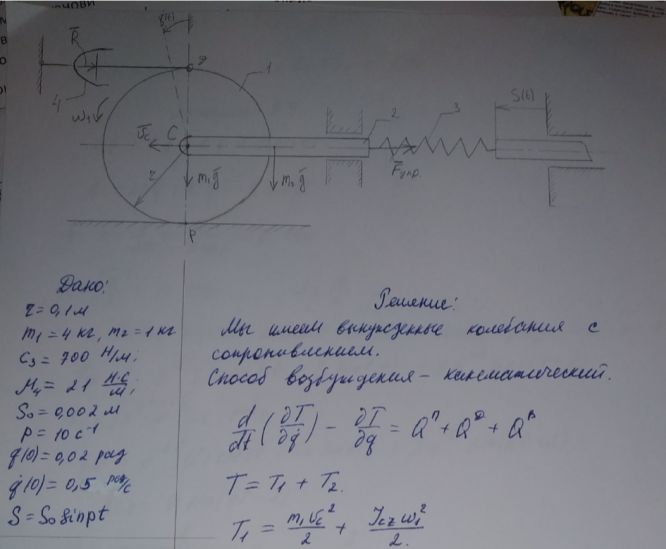 φ(t)
R̄
1
4
ω₁
V̄c
C
2
3
S(t)
r
m₁ḡ
m₂ḡ
F̄упр
P
Дано:
r = 0,1 м
m₁ = 4 кг, m₂ = 1 кг
C₃ = 700 Н/м,
M₄ = 21 Н·с/м,
S₀ = 0,002 м
p = 10 с⁻¹
q(0) = 0,02 рад
q̇(0) = 0,5 рад/с
S = S₀ sinpt
Решение:
Мы имеем вынужденные колебания с
сопротивлением.
Способ возбуждения – кинематический.
d/dt (∂T/∂q̇) − ∂T/∂q = Qⁿ + Q^φ + Qᴮ
T = T₁ + T₂.
T₁ = m₁Vc²/2 + Jcz ω₁²/2.